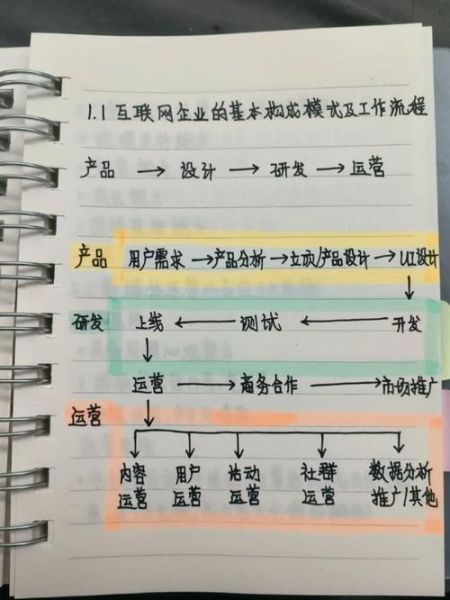 1.1 互联网企业的基本构成模式及工作流程
产品 → 设计 → 研发 → 运营
产品 用户需求 → 产品分析 → 立项/产品设计 → UI设计
研发 上线 ← 测试 ← 开发
运营 → 商务合作 → 市场推广
运营
内容 用户 活动 社群 数据分析
运营 运营 运营 运营 推广/其他